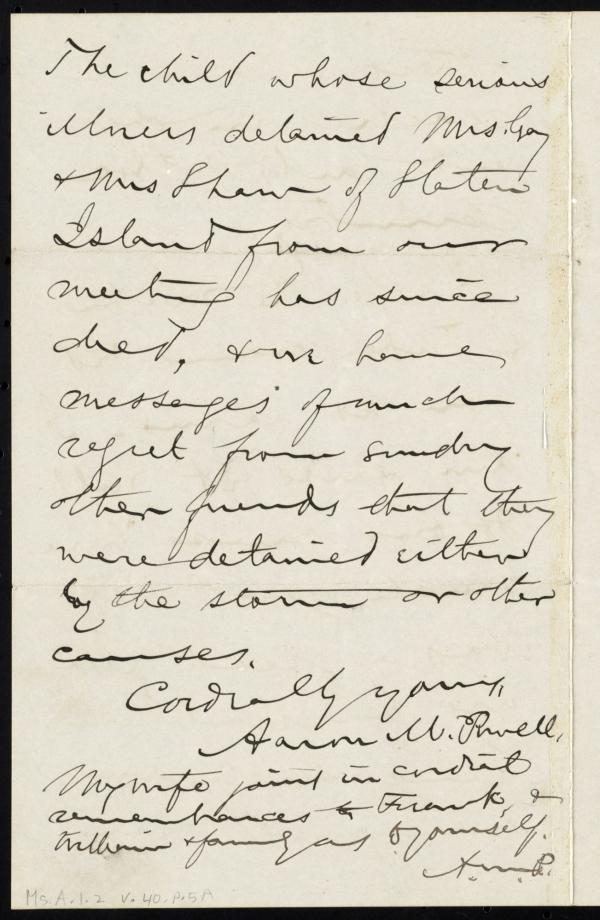 The child whose serious
illness detained Mrs. Gay
& Mrs Shaw of Staten
Island from our
meeting has since
died, & we have
messages of much
regret from sundry
other friends that they
were detained either
by the storm or other
causes.
Cordially yours,
Aaron M. Powell,
My wife joins in cordial
remembrances to Frank, &
William & family as to yourself.
A.M.P.
Ms.A.1.2 v.40.p.5A